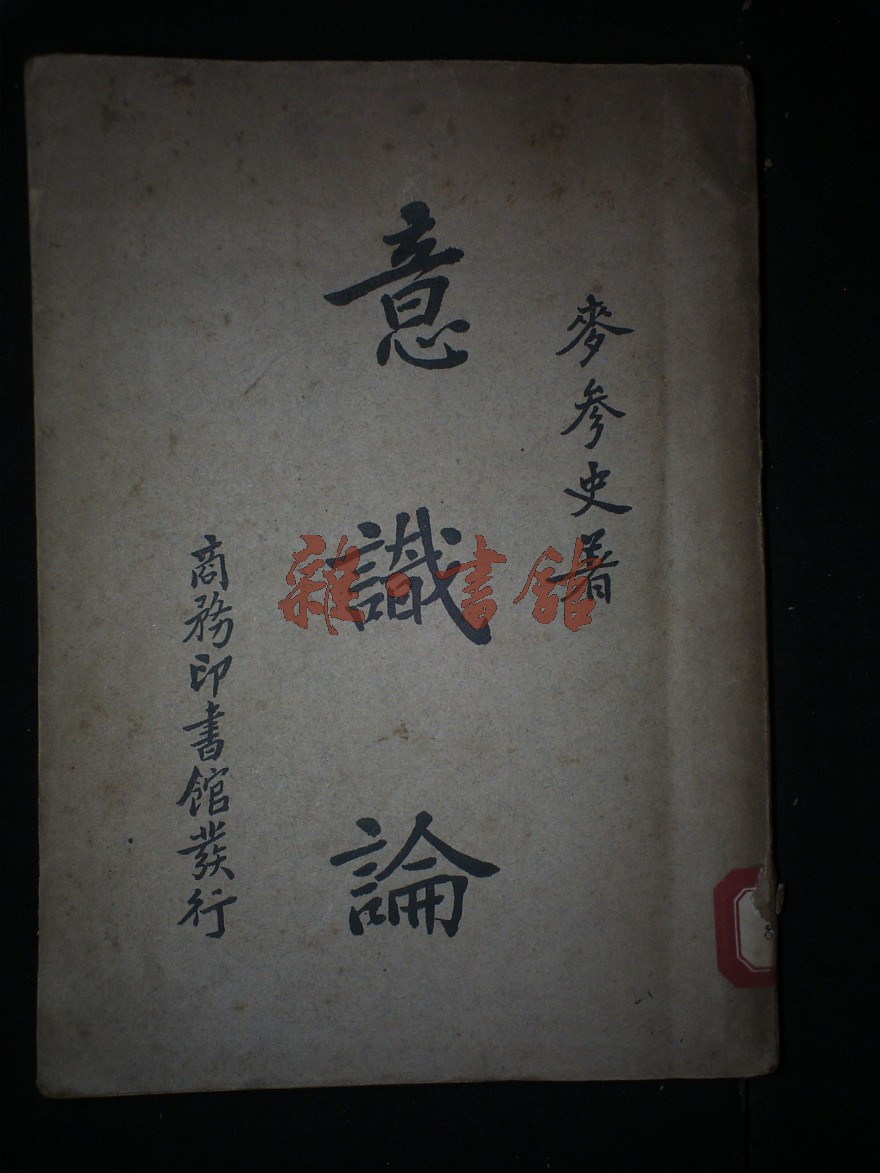 麥參史著
意識論
商務印書館發行
雜·書館